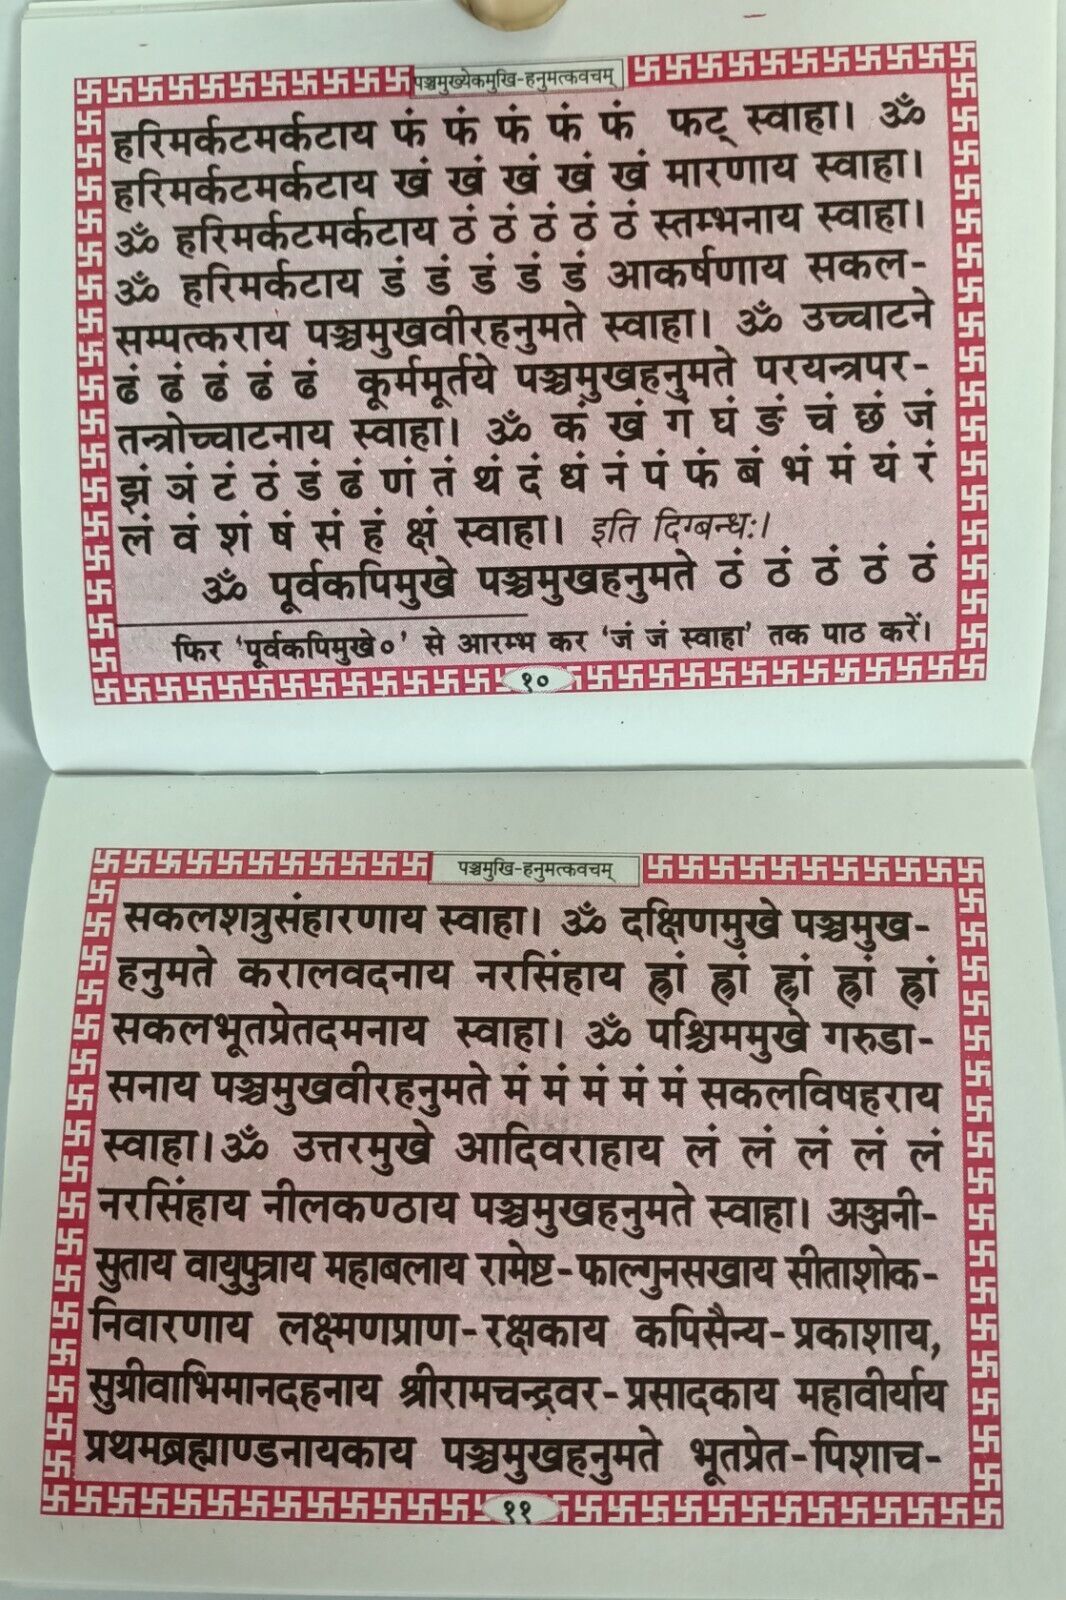 पञ्चमुख्येकमुखि-हनुमत्कवचम्
हरिमर्कटमर्कटाय फं फं फं फं फं फट् स्वाहा। ॐ
हरिमर्कटमर्कटाय खं खं खं खं खं मारणाय स्वाहा।
ॐ हरिमर्कटमर्कटाय ठं ठं ठं ठं ठं स्तम्भनाय स्वाहा।
ॐ हरिमर्कटाय डं डं डं डं डं आकर्षणाय सकल-
सम्पत्कराय पञ्चमुखवीरहनुमते स्वाहा। ॐ उच्चाटने
ढं ढं ढं ढं ढं कूर्ममूर्तये पञ्चमुखहनुमते परयन्त्रपर-
तन्त्रोच्चाटनाय स्वाहा। ॐ कं खं गं घं ङं चं छं जं
झं ञं टं ठं डं ढं णं तं थं दं धं नं पं फं बं भं मं यं रं
लं वं शं षं सं हं क्षं स्वाहा। इति दिग्बन्धः।
ॐ पूर्वकपिमुखे पञ्चमुखहनुमते ठं ठं ठं ठं ठं
फिर 'पूर्वकपिमुखे०' से आरम्भ कर 'जं जं स्वाहा' तक पाठ करें।
१०
पञ्चमुखि-हनुमत्कवचम्
सकलशत्रुसंहारणाय स्वाहा। ॐ दक्षिणमुखे पञ्चमुख-
हनुमते करालवदनाय नरसिंहाय ह्रां ह्रां ह्रां ह्रां ह्रां
सकलभूतप्रेतदमनाय स्वाहा। ॐ पश्चिममुखे गरुडा-
सनाय पञ्चमुखवीरहनुमते मं मं मं मं मं सकलविषहराय
स्वाहा। ॐ उत्तरमुखे आदिवराहाय लं लं लं लं लं
नरसिंहाय नीलकण्ठाय पञ्चमुखहनुमते स्वाहा। अञ्जनी-
सुताय वायुपुत्राय महाबलाय रामेष्ट-फाल्गुनसखाय सीताशोक-
निवारणाय लक्ष्मणप्राण-रक्षकाय कपिसैन्य-प्रकाशाय,
सुग्रीवाभिमानदहनाय श्रीरामचन्द्रवर-प्रसादकाय महावीर्याय
प्रथमब्रह्माण्डनायकाय पञ्चमुखहनुमते भूतप्रेत-पिशाच-
११